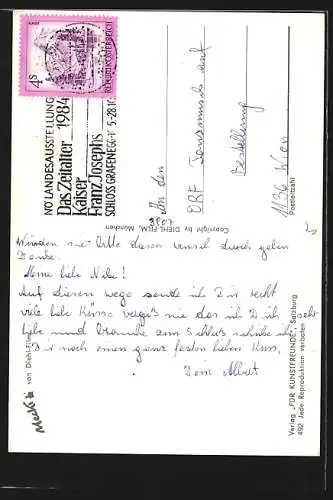 4 S
REPUBLIK ÖSTERREICH
NÖ LANDESAUSSTELLUNG
Das Zeitalter 1984
Kaiser
Franz Josephs
SCHLOSS GRAFENEGG 5-28.10
An den
ORF Tanzmusik auf
Bestellung
1136 Wien
Postleitzahl
Copyright by DIEHL-FILM, München
Würden sie bitte diesen durch geben
Danke.
Meine liebe !
Auf diesen wege sende ich Dir recht
viele liebe Küsse vergiß nie das ich Dich sehr
liebe und brauche zum Schluß ich
Dir noch einen ganz festen lieben Kuss,
Dein Albert
Mecki von Diehl-Film
Verlag „FÜR KUNSTFREUNDE", Salzburg
492 Jede Reproduktion verboten